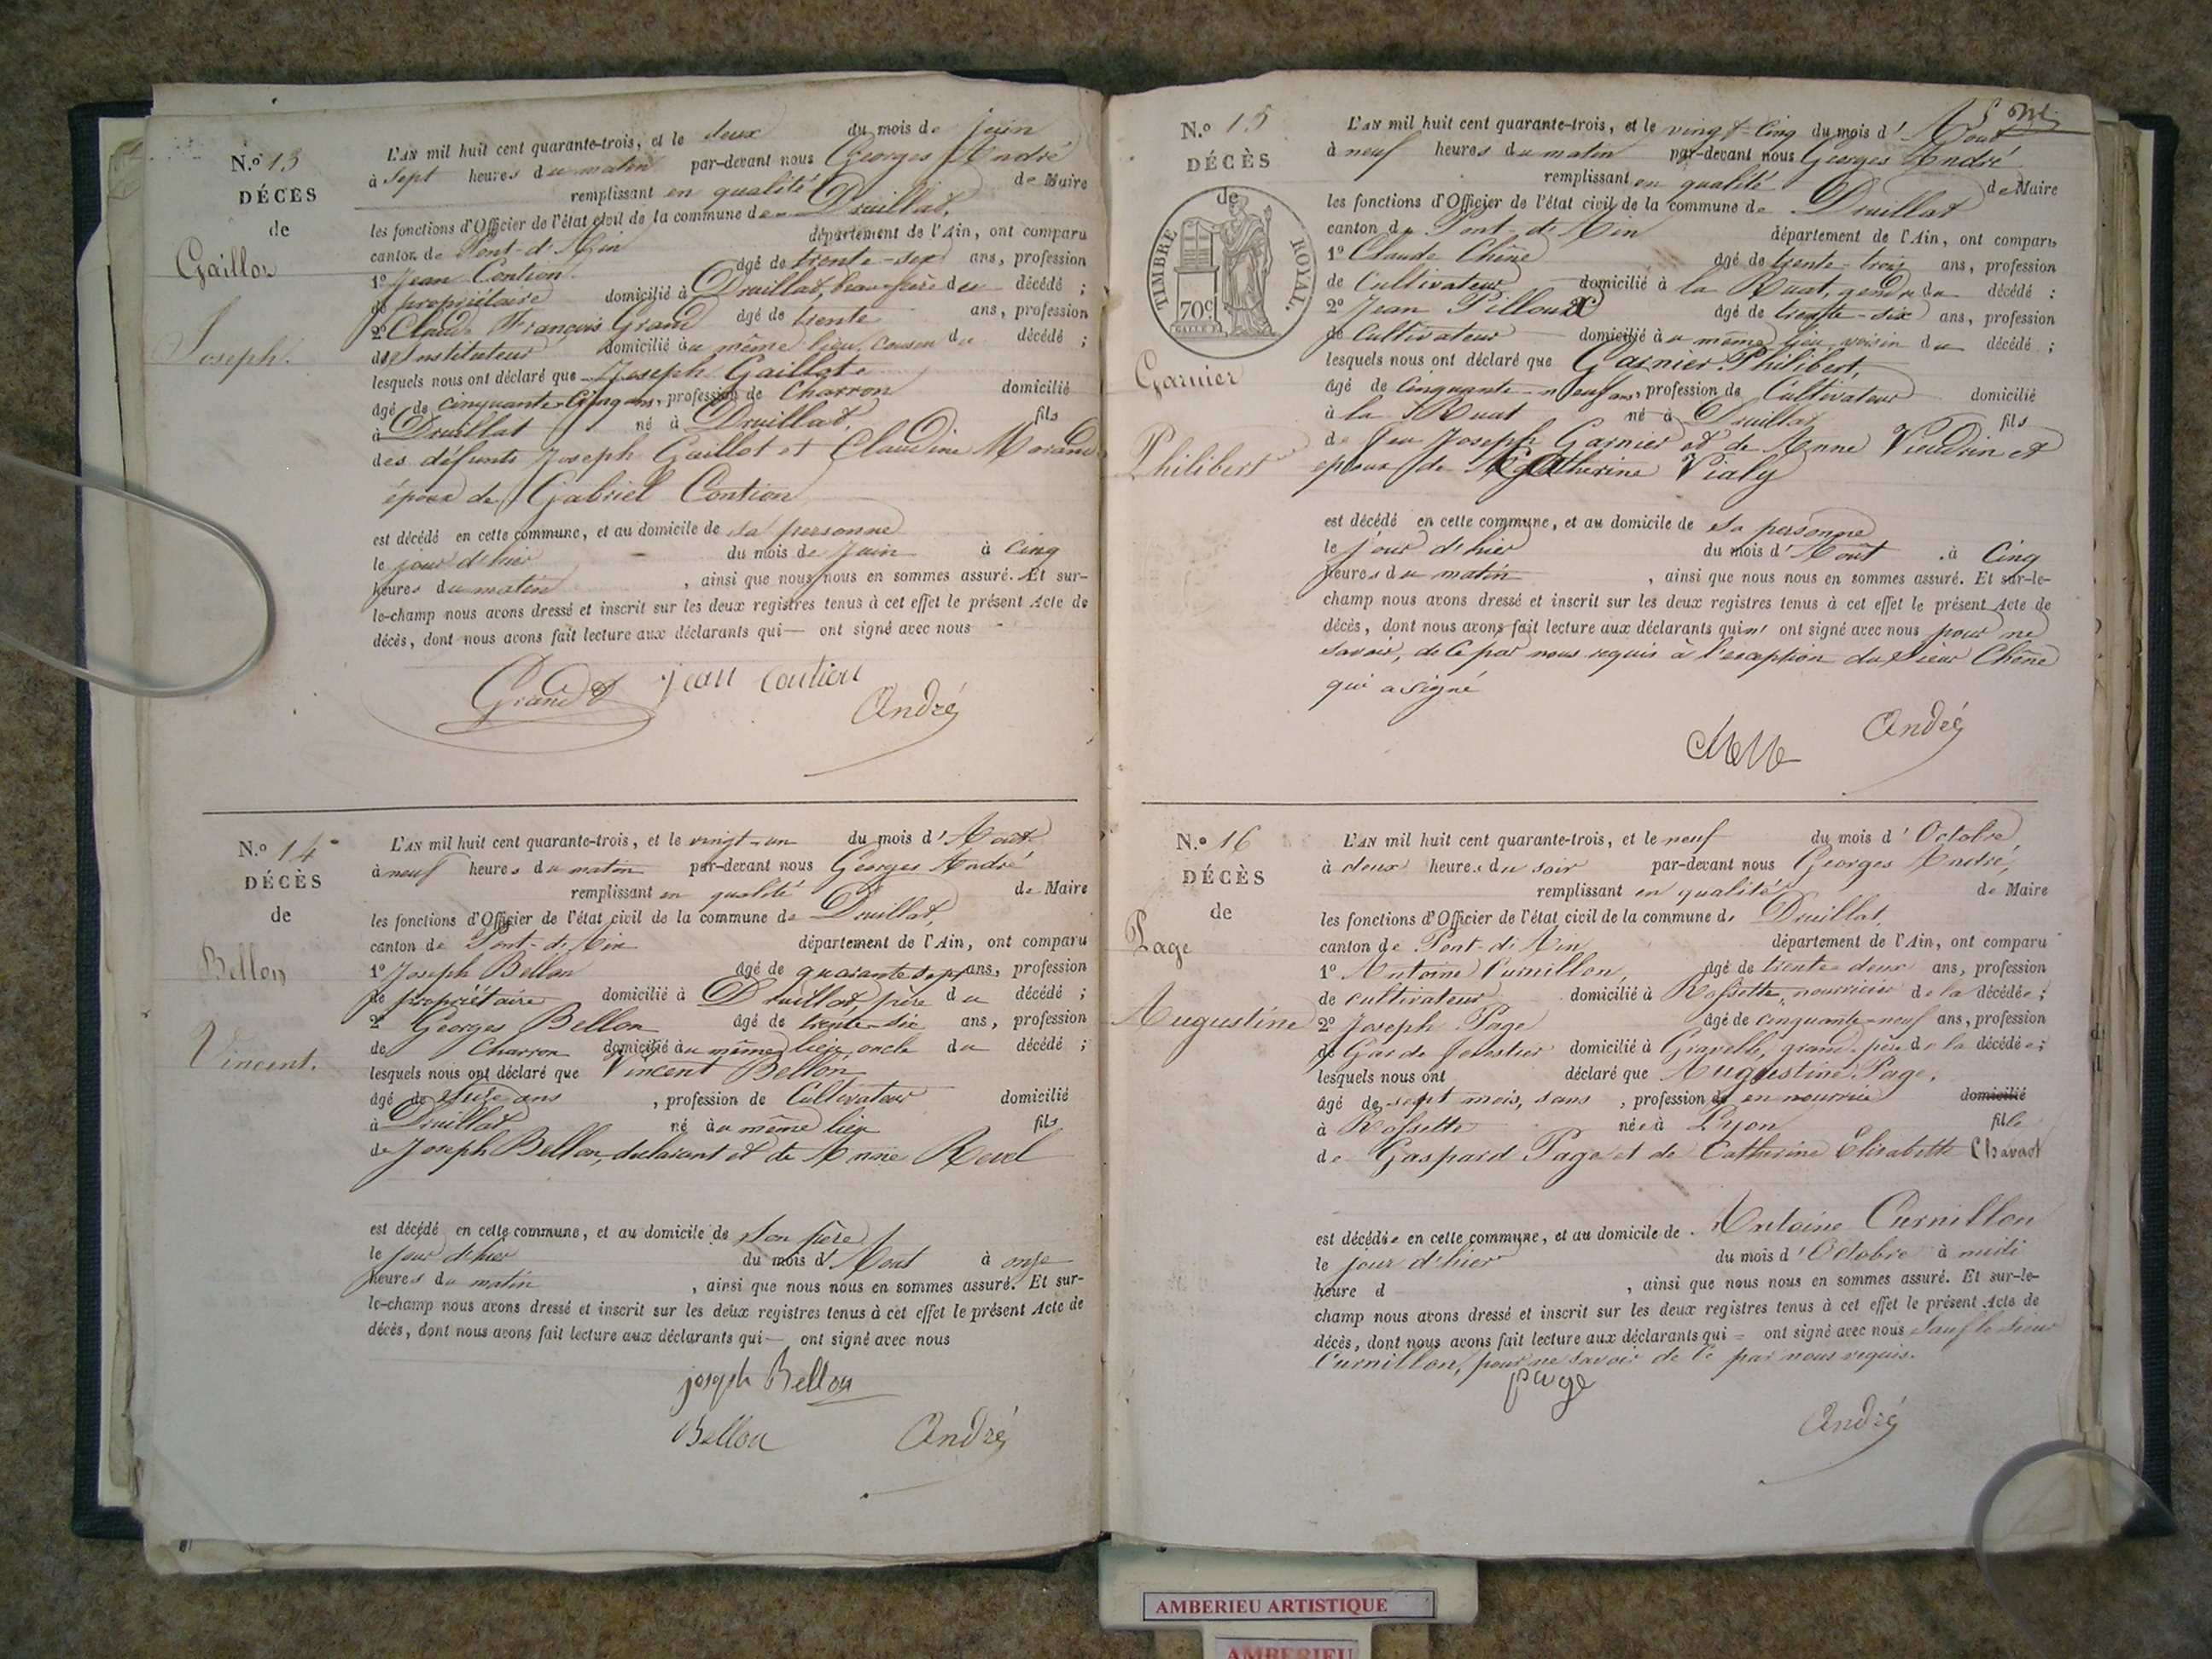 N.º 13
DÉCÈS
de
Gaillot
Joseph.
L'AN mil huit cent quarante-trois, et le deux du mois de juin
à sept heures du matin par-devant nous Georges André
remplissant en qualité de Maire
les fonctions d'Officier de l'état civil de la commune de Druillat,
canton de Pont-d'Ain département de l'Ain, ont comparu
1º Jean Contion âgé de trente-six ans, profession
de propriétaire domicilié à Druillat, beau-frère du décédé ;
2º Claude François Grand âgé de trente ans, profession
d'Instituteur domicilié au même lieu, cousin du décédé ;
lesquels nous ont déclaré que Joseph Gaillot
âgé de cinquante-cinq ans, profession de Charron domicilié
à Druillat né à Druillat, fils
des défunts Joseph Gaillot et Claudine Morand
époux de Gabriel Contion
est décédé en cette commune, et au domicile de sa personne
le jour d'hier du mois de Juin à cinq
heures du matin , ainsi que nous nous en sommes assuré. Et sur-
le-champ nous avons dressé et inscrit sur les deux registres tenus à cet effet le présent Acte de
décès, dont nous avons fait lecture aux déclarants qui — ont signé avec nous
Grand jean contion
André
N.º 14
DÉCÈS
de
Bellon
Vincent.
L'AN mil huit cent quarante-trois, et le vingt-un du mois d'Août
à neuf heures du matin par-devant nous Georges André
remplissant en qualité de Maire
les fonctions d'Officier de l'état civil de la commune de Druillat,
canton de Pont-d'Ain département de l'Ain, ont comparu
1º Joseph Bellon âgé de quarante sept ans, profession
de propriétaire domicilié à Druillat père du décédé ;
2º Georges Bellon âgé de trente-six ans, profession
de Charron domicilié au même lieu, oncle du décédé ;
lesquels nous ont déclaré que Vincent Bellon
âgé de seize ans , profession de Cultivateur domicilié
à Druillat, né au même lieu fils
de Joseph Bellon, déclarant et de Anne Revel
est décédé en cette commune, et au domicile de son père
le jour d'hier du mois d'Aout à onze
heures du matin , ainsi que nous nous en sommes assuré. Et sur-
le-champ nous avons dressé et inscrit sur les deux registres tenus à cet effet le présent Acte de
décès, dont nous avons fait lecture aux déclarants qui — ont signé avec nous
joseph Bellon
Bellon André
N.º 15
DÉCÈS
de
TIMBRE ROYAL.
70c
Garnier
Philibert
L'AN mil huit cent quarante-trois, et le vingt-cinq du mois d'Aout
à neuf heures du matin par-devant nous Georges André
remplissant en qualité de Maire
les fonctions d'Officier de l'état civil de la commune de Druillat
canton de Pont-d'Ain département de l'Ain, ont comparu
1º Claude Chêne âgé de trente-trois ans, profession
de Cultivateur domicilié à la Ruat, gendre du décédé ;
2º Jean Pilloux âgé de trente-six ans, profession
de Cultivateur domicilié au même lieu, voisin du décédé ;
lesquels nous ont déclaré que Garnier Philibert,
âgé de cinquante-neuf ans, profession de Cultivateur domicilié
à la Ruat né à Druillat fils
de feu Joseph Garnier et de Anne Vieudrin et
époux de Catherine Vialy
est décédé en cette commune, et au domicile de sa personne
le jour d'hier du mois d'Août à Cinq
heures du matin , ainsi que nous nous en sommes assuré. Et sur-le-
champ nous avons dressé et inscrit sur les deux registres tenus à cet effet le présent Acte de
décès, dont nous avons fait lecture aux déclarants qui n' ont signé avec nous pour ne
savoir, de ce par nous requis à l'exception du sieur Chêne
qui a signé
André
N.º 16
DÉCÈS
de
Page
Augustine
L'AN mil huit cent quarante-trois, et le neuf du mois d'Octobre,
à deux heures du soir par-devant nous Georges André,
remplissant en qualité de Maire
les fonctions d'Officier de l'état civil de la commune de Druillat,
canton de Pont-d'Ain département de l'Ain, ont comparu
1º Antoine Curnillon, âgé de trente deux ans, profession
de cultivateur domicilié à Rossette, nourricier de la décédée ;
2º Joseph Page âgé de cinquante-neuf ans, profession
de Garde forestier domicilié à Gravelle, grand-père de la décédée ;
lesquels nous ont déclaré que Augustine Page,
âgé de sept mois, sans , profession de en nourrice domicilié
à Rossette née à Lyon fille
de Gaspard Page et de Catherine Elisabeth Chavant
est décédée en cette commune, et au domicile de Antoine Curnillon
le jour d'hier du mois d'Octobre à midi
heure d , ainsi que nous nous en sommes assuré. Et sur-le-
champ nous avons dressé et inscrit sur les deux registres tenus à cet effet le présent Acte de
décès, dont nous avons fait lecture aux déclarants qui = ont signé avec nous sauf le sieur
Curnillon, pour ne savoir de ce par nous requis.
page
André
AMBERIEU ARTISTIQUE
AMBERIEU